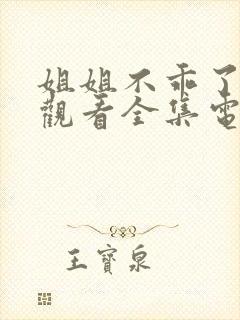 姐姐不乖了
觀看全集電
王寶泉